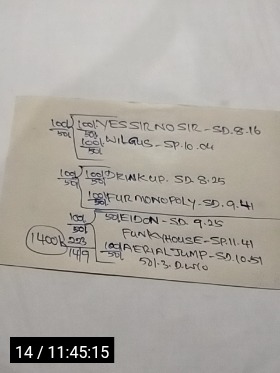 100/50/ 100/50/ YESSIRNOSIR - SD.8.16
100/50/ WILGUS - SP.10.04
100/50/ 100/50/ DRINKUP. SD.8.25
100/50/ FURMONOPOLY - SD.9.41
100/ 50/EIDON - SD. 9.25
50/ FUNKYHOUSE - SP.11.41
1400/ 253 100/50/ AERIALJUMP - SD.10.51
1419 50/-3.D.W10
14 / 11:45:15